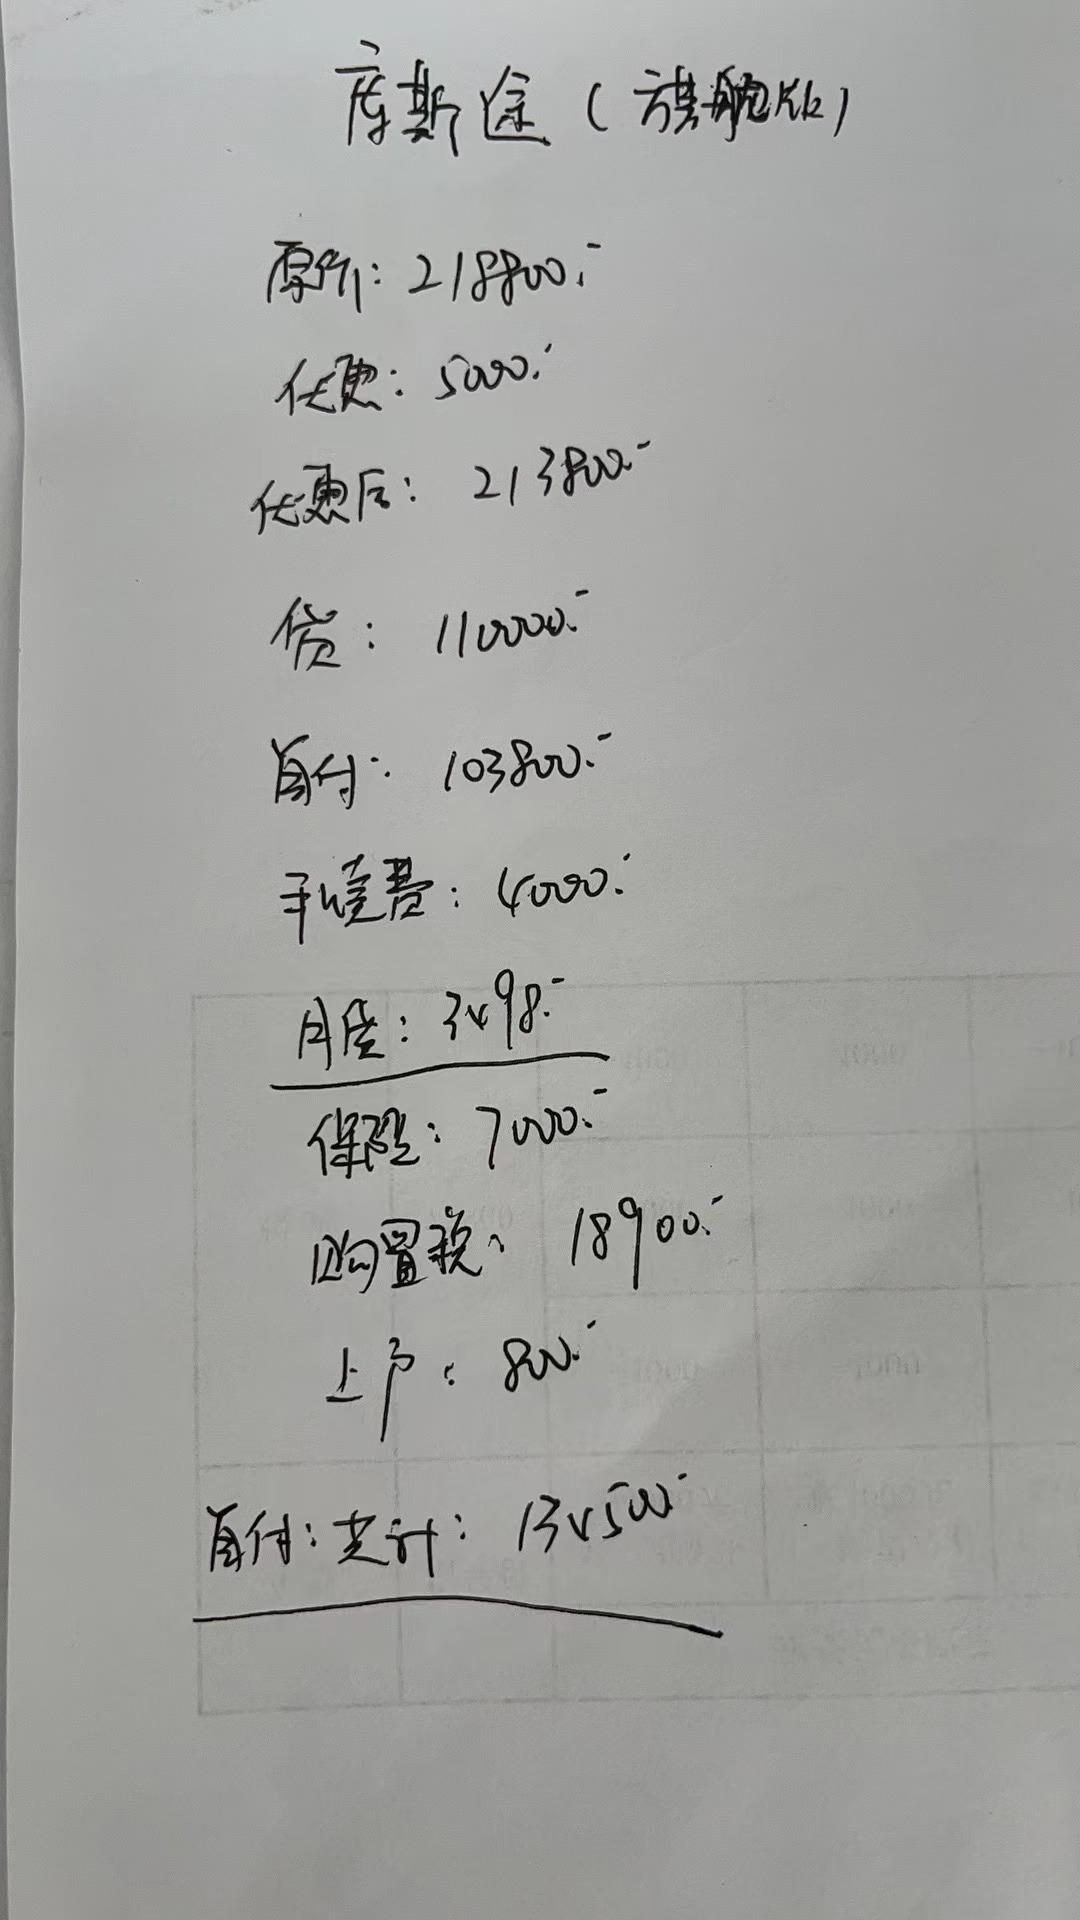 库斯途（旗舰版）
原价：218800.-
优惠：5000.-
优惠后：213800.-
贷：110000.-
首付：103800.-
手续费：4000.-
月供：3498.-
保险：7000.-
购置税：18900.-
上户：800.-
首付：共计：134500.-